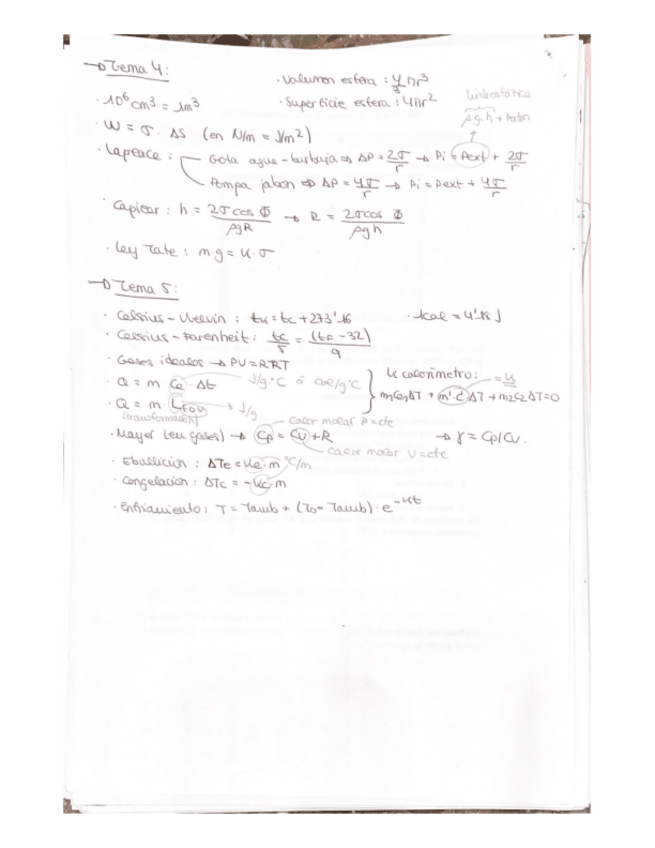 → Tema 4:
· Volumen esfera : 4/3 πr³
· 10⁶ cm³ = 1m³
· Superficie esfera : 4πr²
hidrostática
ρ·g·h + Patm
· W = σ · ΔS (en N/m = J/m²)
· Laplace : Gota agua - burbuja ⇒ ΔP = 2σ/r → Pi = Pext + 2σ/r
Pompa jabon ⇒ ΔP = 4σ/r → Pi = Pext + 4σ/r
· Capilar : h = 2σcos Φ / ρgR → R = 2σcos Φ / ρgh
· Ley Tate : m·g = k·σ
→ Tema 5:
· Celsius - Kelvin : tk = tc + 273'16
· 1cal = 4'18 J
· Celsius - Farenheit : tc/5 = (tF - 32)/9
· Gases ideales → PV = nRT
· Q = m · Ce · Δt
J/g°C ó cal/g°C
K calorímetro :
= K
m₁Ce₁ΔT + m'·C'ΔT + m₂C₂ΔT = 0
· Q = m · LF o V
J/g
(transformación)
calor molar P = cte
· Mayer (en gases) → Cp = Cv + R
→ γ = Cp/Cv.
calor molar V = cte
· Ebullición : ΔTe = Ke · m
°C/m
· Congelación : ΔTc = -Kc · m
· Enfriamiento : T = Tamb + (T₀ - Tamb) · e^-kt